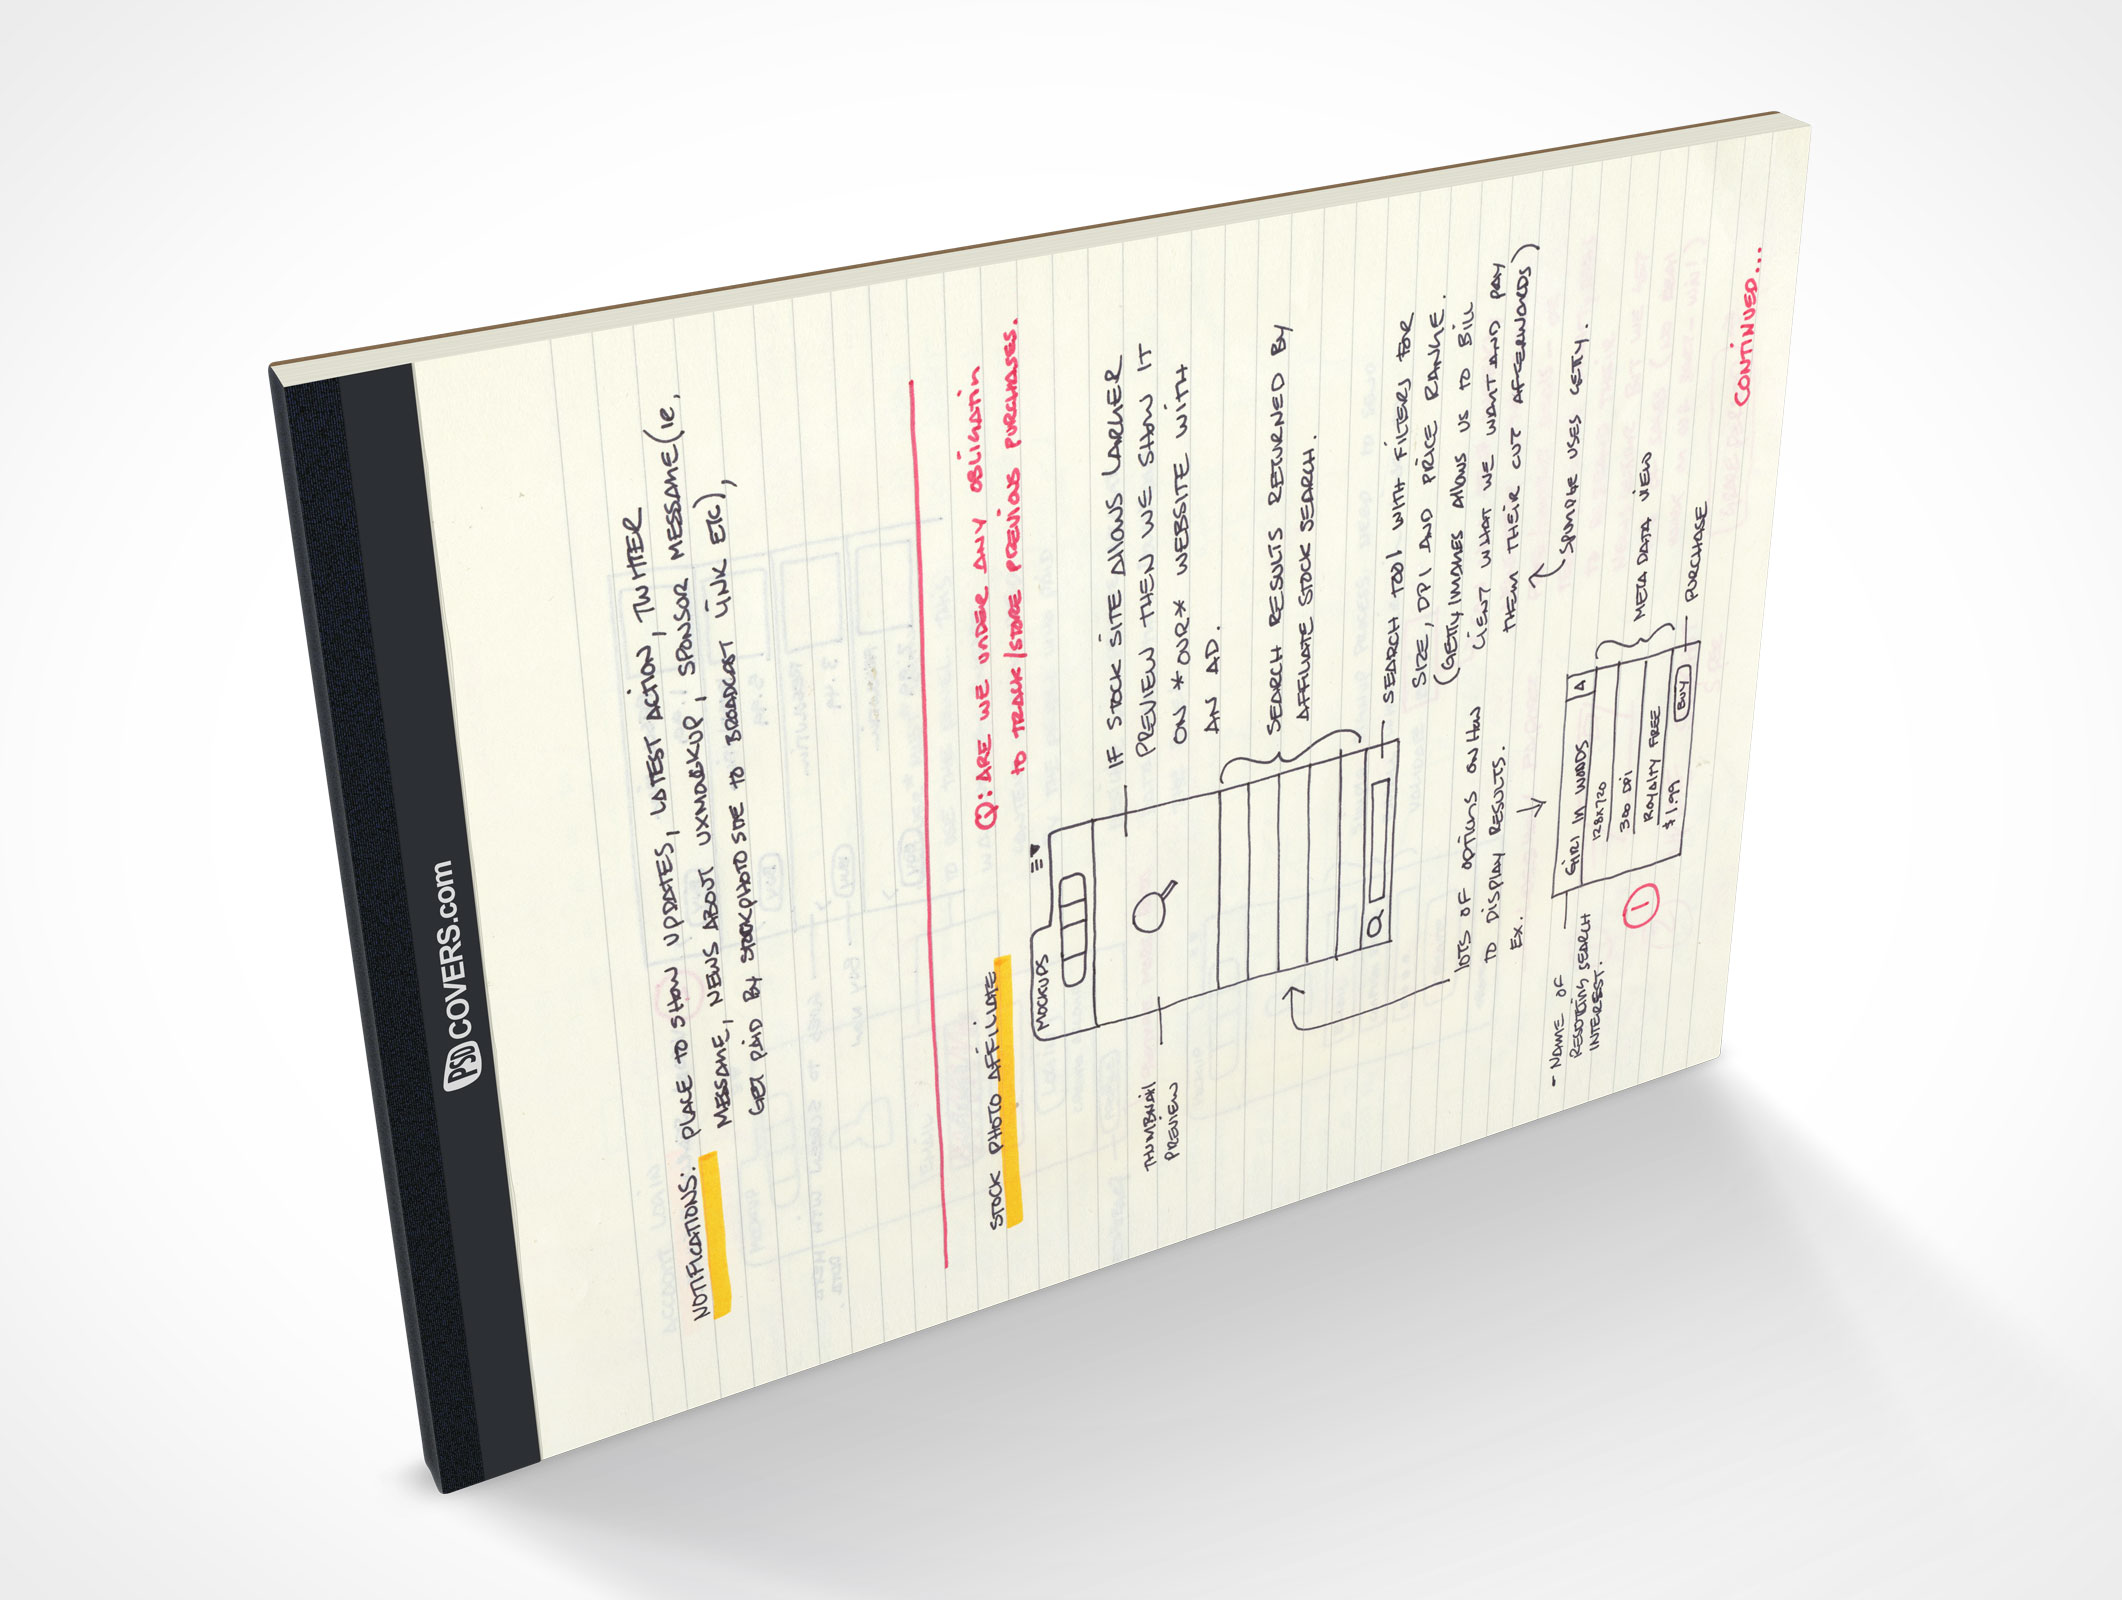 PSDCOVERS.com
NOTIFICATIONS: PLACE TO SHOW UPDATES, LATEST ACTION, TWITTER
MESSAGE, NEWS ABOUT UXMOCKUP, SPONSOR MESSAGE (ie,
GET PAID BY STOCKPHOTO SITE TO BROADCAST LINK ETC),
Q: ARE WE UNDER ANY OBLIGATIN
TO TRACK/STORE PREVIOUS PURCHASES.
STOCK PHOTO AFFILIATE
MOCKUPS
IF STOCK SITE ALLOWS LARGER
PREVIEW THEN WE SHOW IT
ON *OUR* WEBSITE WITH
AN AD.
THUMBNAIL
PREVIEW
SEARCH RESULTS RETURNED BY
AFFILIATE STOCK SEARCH.
SEARCH TOOL WITH FILTERS FOR
SIZE, DPI AND PRICE RANGE.
(GETTYIMAGES ALLOWS US TO BILL
CLIENT WHAT WE WANT AND PAY
THEM THEIR CUT AFTERWORDS)
SPUMPTE USES GETTY.
LOTS OF OPTIONS ON HOW
TO DISPLAY RESULTS.
EX.
- NAME OF
RESULTING SEARCH
INTEREST.
GIRL IN WOODS
128x720
300 DPI
ROYALTY FREE
$1.99
BUY
META DATA VIEW
PURCHASE
1
CONTINUED...